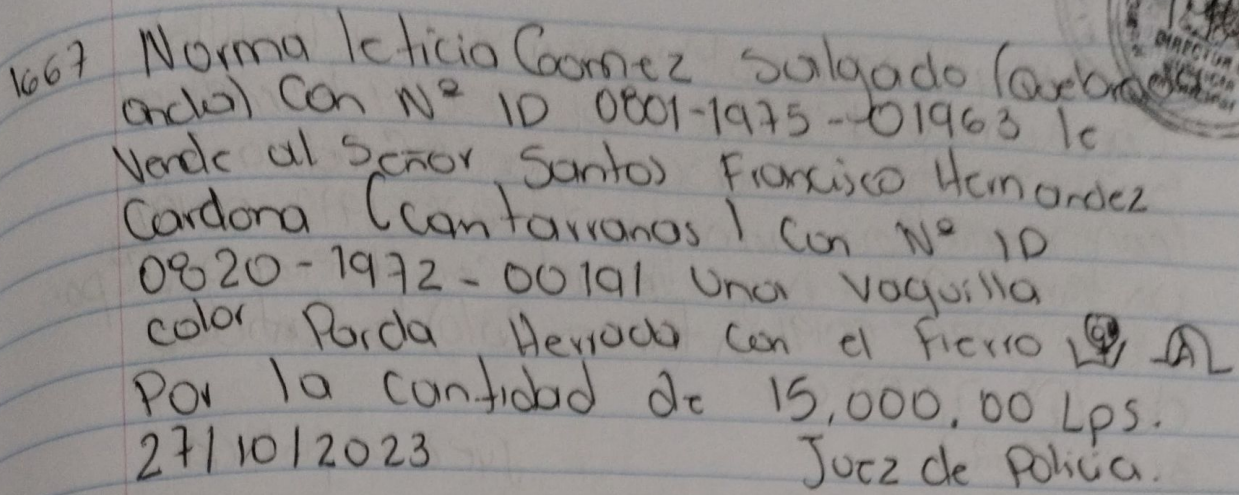 1667 Norma leticia Goomez Salgado (Quebra
ancha) Con Nº ID 0801-1975-01963 le
Vende al Señor Santos Francisco Hernandez
Cardona (cantarranas) Con Nº ID
0820-1972-00191 Una vaquilla
color Parda Herrada con el Fierro
Por la cantidad de 15,000.00 Lps.
27/10/2023 Juez de Policia.